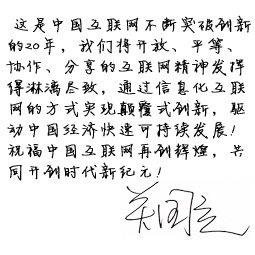 这是中国互联网不断突破创新
的20年，我们将开放、平等、
协作、分享的互联网精神发挥
得淋漓尽致，通过信息化互联
网的方式实现颠覆式创新，驱
动中国经济快速可持续发展！
祝福中国互联网再创辉煌，共
同开创时代新纪元！